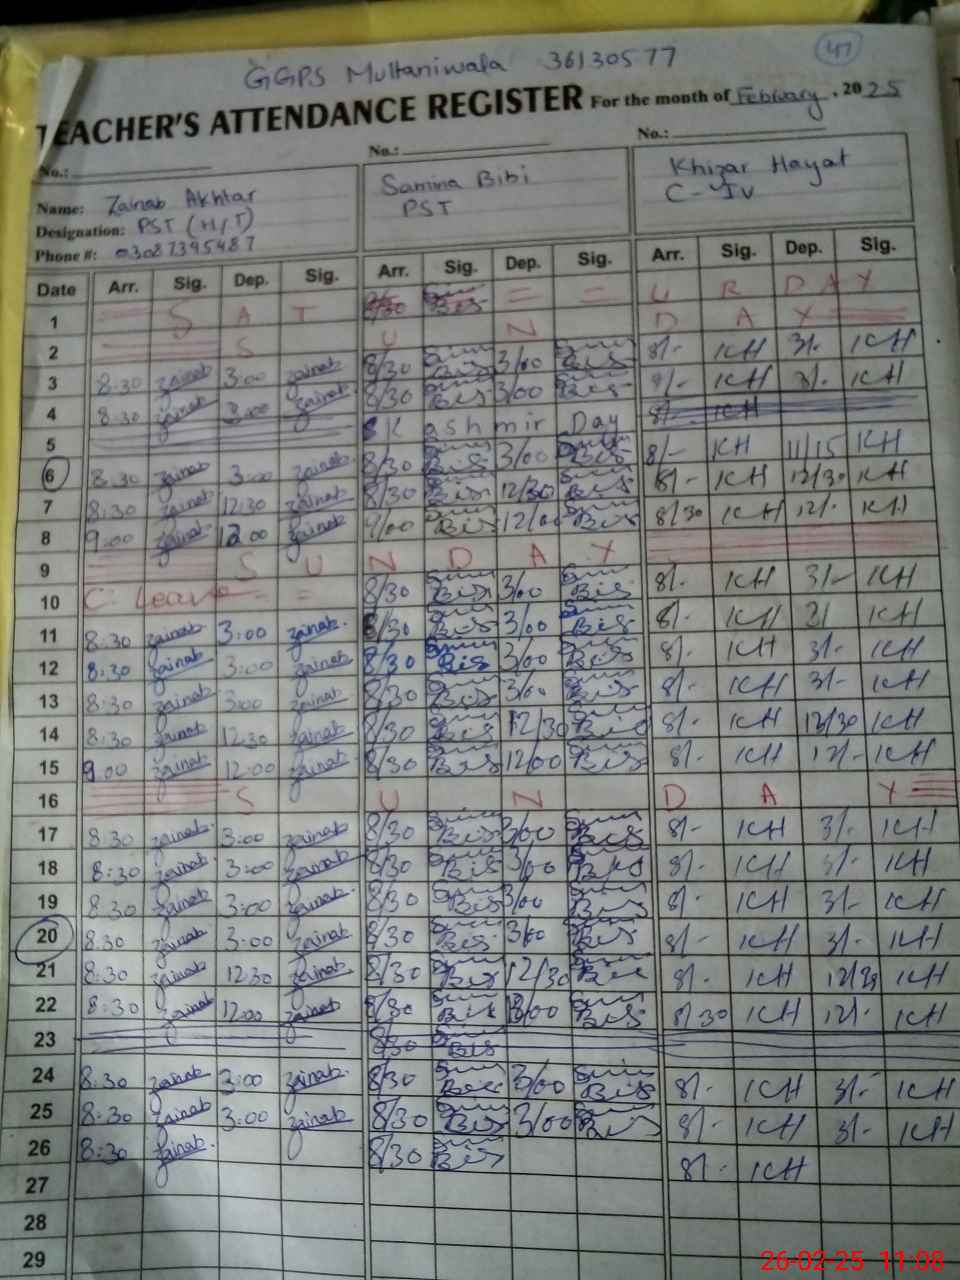 GGPS Multaniwala 36130577
47
TEACHER'S ATTENDANCE REGISTER For the month of February, 2025
No.: No.: No.:
Name: Zainab Akhtar Samina Bibi Khizar Hayat
Designation: PST (H/T) PST C-IV
Phone #: 03087395487
Date Arr. Sig. Dep. Sig. Arr. Sig. Dep. Sig. Arr. Sig. Dep. Sig.
1 S A T 8/30 = = U R D A Y
2 S U N D A Y
3 8:30 zainab 3:00 zainab 8/30 Bis 3/00 Bis 8/- KH 3/- KH
4 8:30 zainab 3:00 zainab 8/30 Bis 3/00 Bis 8/- KH 3/- KH
5 Kashmir Day 8/- KH
6 8:30 zainab 3:00 zainab 8/30 Bis 3/00 Bis 8/- KH 11/15 KH
7 8:30 zainab 12:30 zainab 8/30 Bis 12/30 Bis 8/- KH 12/30 KH
8 9:00 zainab 12:00 zainab 9/00 Bis 12/00 Bis 8/30 KH 12/- KH
9 S U N D A Y
10 C. Leave = = 8/30 Bis 3/00 Bis 8/- KH 3/- KH
11 8:30 zainab 3:00 zainab 8/30 Bis 3/00 Bis 8/- KH 3/ KH
12 8:30 zainab 3:00 zainab 8/30 Bis 3/00 Bis 8/- KH 3/- KH
13 8:30 zainab 3:00 zainab 8/30 Bis 3/00 Bis 8/- KH 3/- KH
14 8:30 zainab 12:30 zainab 8/30 Bis 12/30 Bis 8/- KH 12/30 KH
15 9:00 zainab 12:00 zainab 8/30 Bis 12/00 Bis 8/- KH 12/- KH
16 S U N D A Y
17 8:30 zainab 3:00 zainab 8/30 Bis 3/00 Bis 8/- KH 3/- KH
18 8:30 zainab 3:00 zainab 8/30 Bis 3/00 Bis 8/- KH 3/- KH
19 8:30 zainab 3:00 zainab 8/30 Bis 3/00 Bis 8/- KH 3/- KH
20 8:30 zainab 3:00 zainab 8/30 Bis 3/00 Bis 8/- KH 3/- KH
21 8:30 zainab 12:30 zainab 8/30 Bis 12/30 Bis 8/- KH KH
22 8:30 zainab 12:00 zainab 8/30 Bis 12/00 Bis 8/30 KH 12/- KH
23 8/30 Bis
24 8:30 zainab 3:00 zainab 8/30 Bis 3/00 Bis 8/- KH 3/- KH
25 8:30 zainab 3:00 zainab 8/30 Bis 3/00 Bis 8/- KH 3/- KH
26 8:30 zainab 8/30 Bis 8/- KH
27
28
29
26-02-25 11:08